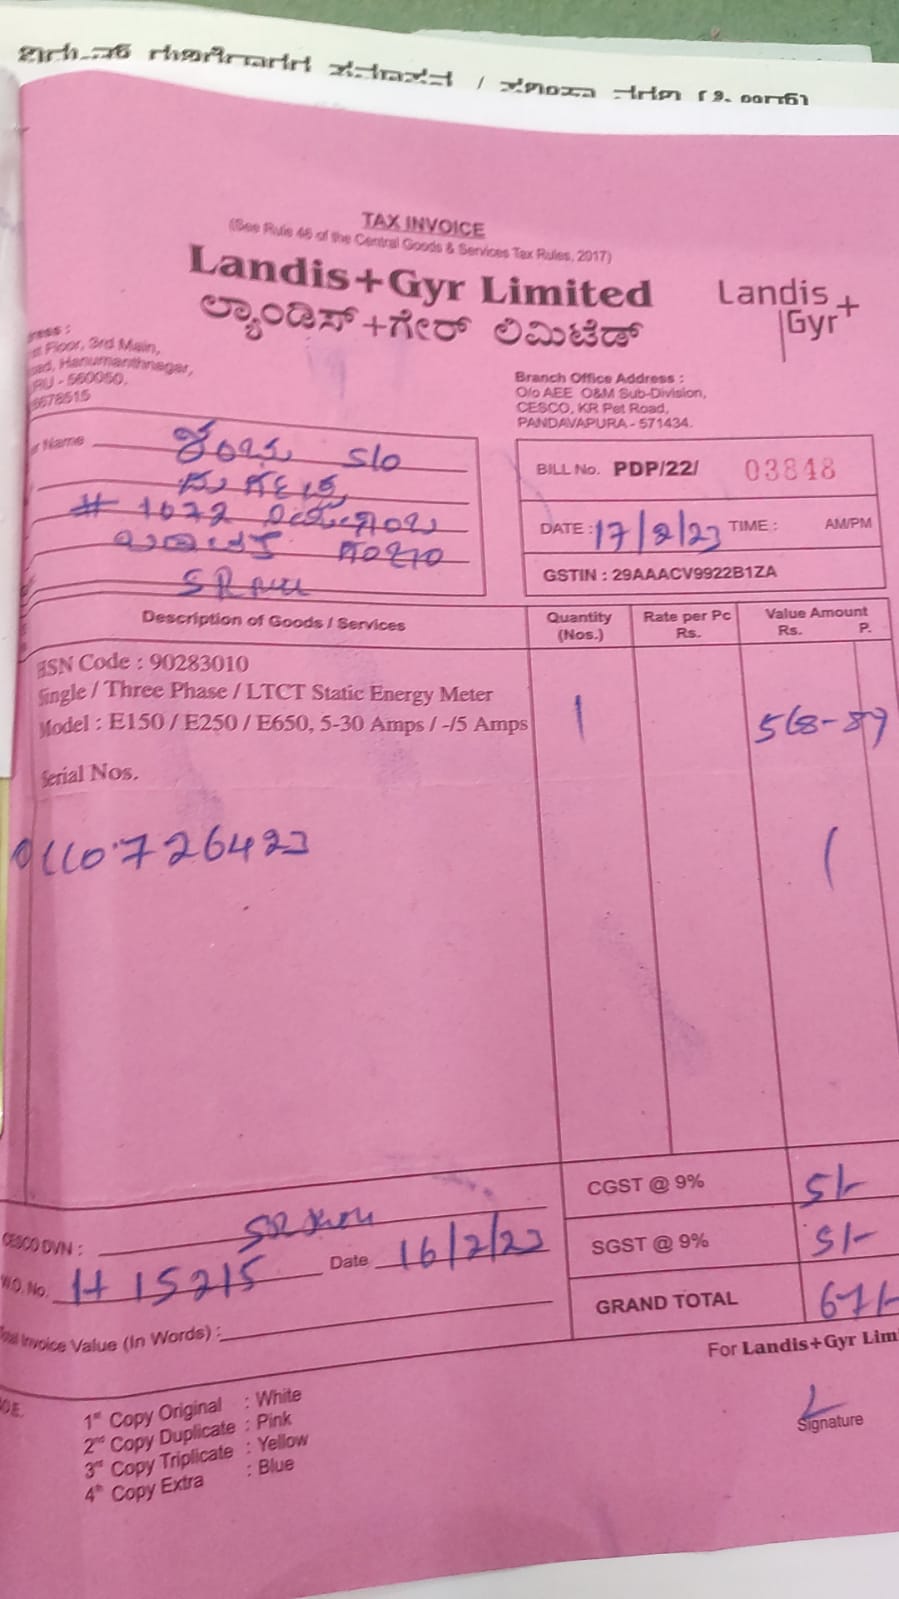 TAX INVOICE
(See Rule 46 of the Central Goods & Services Tax Rules, 2017)
Landis+Gyr Limited
ಲ್ಯಾಂಡಿಸ್+ಗೇರ್ ಲಿಮಿಟೆಡ್
Landis+
Gyr
ress :
st Floor, 3rd Main,
ad, Hanumanthnagar,
RU - 560050.
6678515
Branch Office Address :
O/o AEE O&M Sub-Division,
CESCO, KR Pet Road,
PANDAVAPURA - 571434.
r Name S/o
# 1072
BILL No. PDP/22/ 03848
DATE : 17/2/23 TIME : AM/PM
GSTIN : 29AAACV9922B1ZA
Description of Goods / Services
Quantity (Nos.)
Rate per Pc Rs.
Value Amount Rs. P.
HSN Code : 90283010
Single / Three Phase / LTCT Static Energy Meter
Model : E150 / E250 / E650, 5-30 Amps / -/5 Amps 1 568-89
Serial Nos.
0726423
CGST @ 9% 51/-
SGST @ 9% 51/-
GRAND TOTAL 671/-
CESCO DVN :
W.O. No. 15215 Date 16/2/23
Total Invoice Value (In Words) :
For Landis+Gyr Lim
Signature
O.E.
1st Copy Original : White
2nd Copy Duplicate : Pink
3rd Copy Triplicate : Yellow
4th Copy Extra : Blue